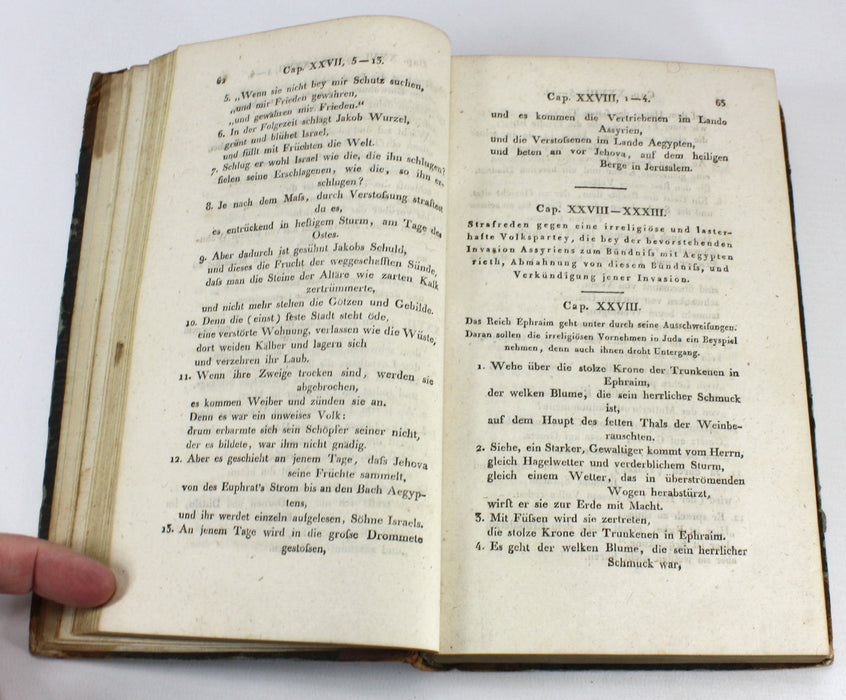 62
Cap. XXVII, 5—13.
5. „Wenn sie nicht bey mir Schutz suchen,
„und mir Frieden gewähren,
„und gewähren mir Frieden.“
6. In der Folgezeit schlägt Jakob Wurzel,
grünt und blühet Israel,
und füllt mit Früchten die Welt.
7. Schlug er wohl Israel wie die, die ihn schlugen?
fielen seine Erschlagenen, wie die, so ihn er-
schlugen?
8. Je nach dem Maſs, durch Verstoſsung straftest
du es,
es entrückend in heftigem Sturm, am Tage des
Ostes.
9. Aber dadurch ist gesühnt Jakobs Schuld,
und dieses die Frucht der weggeschafften Sünde,
daſs man die Steine der Altäre wie zarten Kalk
zertrümmerte,
und nicht mehr stehen die Götzen und Gebilde.
10. Denn die (einst) feste Stadt steht öde,
eine verstörte Wohnung, verlassen wie die Wüste,
dort weiden Kälber und lagern sich
und verzehren ihr Laub.
11. Wenn ihre Zweige trocken sind, werden sie
abgebrochen,
es kommen Weiber und zünden sie an.
Denn es war ein unweises Volk:
drum erbarmte sich sein Schöpfer seiner nicht,
der es bildete, war ihm nicht gnädig.
12. Aber es geschieht an jenem Tage, daſs Jehova
seine Früchte sammelt,
von des Euphrat's Strom bis an den Bach Aegyp-
tens,
und ihr werdet einzeln aufgelesen, Söhne Israels.
13. An jenem Tage wird in die groſse Drommete
gestoſsen,
Cap. XXVIII, 1—4.
63
und es kommen die Vertriebenen im Lande
Assyrien,
und die Verstoſsenen im Lande Aegypten,
und beten an vor Jehova, auf dem heiligen
Berge in Jerusalem.
Cap. XXVIII—XXXIII.
Strafreden gegen eine irreligiöse und laster-
hafte Volkspartey, die bey der bevorstehenden
Invasion Assyriens zum Bündniſs mit Aegypten
rieth, Abmahnung von diesem Bündniſs, und
Verkündigung jener Invasion.
Cap. XXVIII.
Das Reich Ephraim geht unter durch seine Ausschweifungen.
Daran sollen die irreligiösen Vornehmen in Juda ein Beyspiel
nehmen, denn auch ihnen droht Untergang.
1. Wehe über die stolze Krone der Trunkenen in
Ephraim,
der welken Blume, die sein herrlicher Schmuck
ist,
auf dem Haupt des fetten Thals der Weinbe-
rauschten.
2. Siehe, ein Starker, Gewaltiger kommt vom Herrn,
gleich Hagelwetter und verderblichem Sturm,
gleich einem Wetter, das in überströmenden
Wogen herabstürzt,
wirft er sie zur Erde mit Macht.
3. Mit Füſsen wird sie zertreten,
die stolze Krone der Trunkenen in Ephraim.
4. Es geht der welken Blume, die sein herrlicher
Schmuck war,